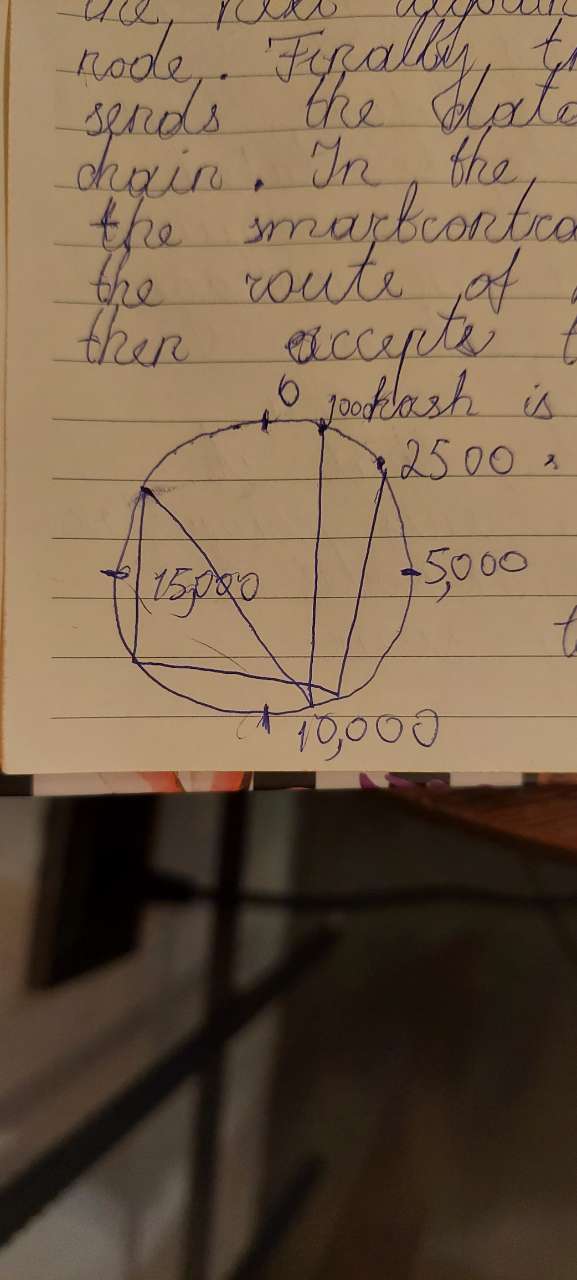 the next
node. Finally, t
sends the data
chain. In the
the smartcontra
the route of
then accepts t
0 hash is
2500
5,000
15,000
10,000